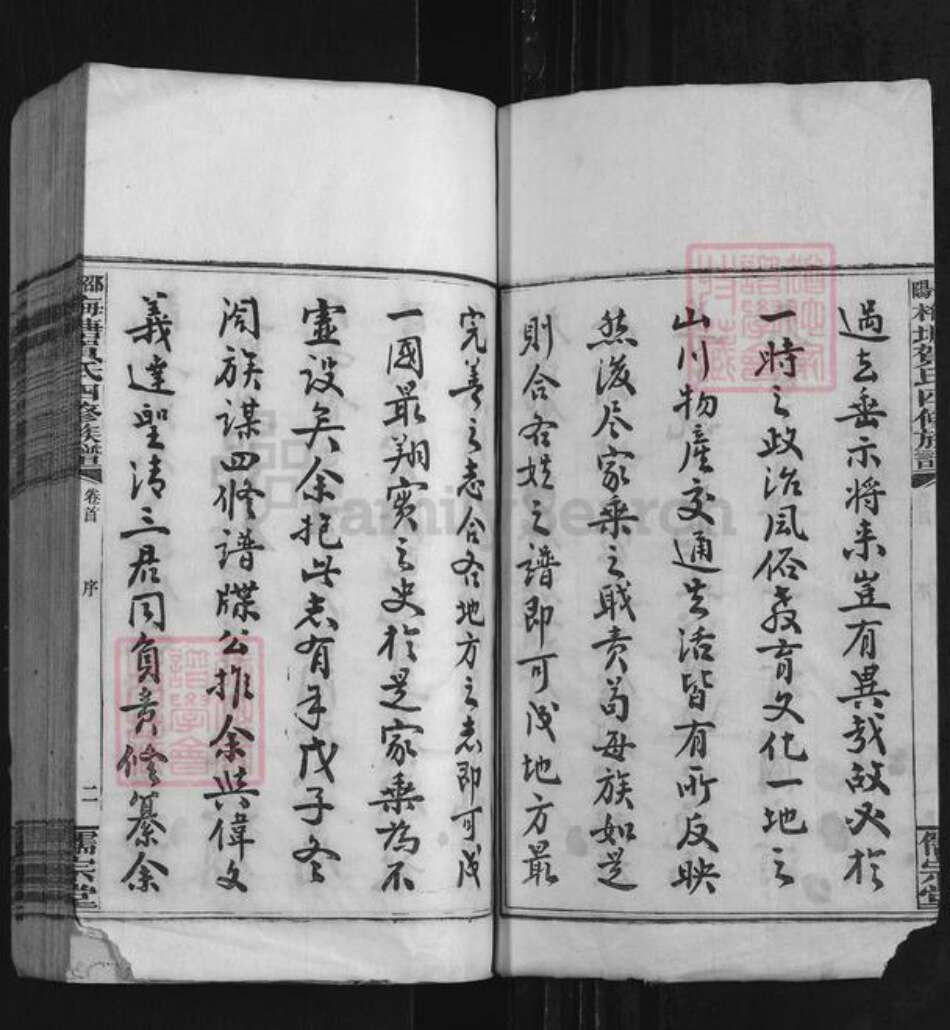 過去垂示将来豈有異哉故必於
一時之政治風俗教育文化一地之
山川物産交通生活皆有所反映
然後尽家乗之戝责苟每族如是
則合各姓之譜即可成地方最
完善之志合各地方之志即可成
一國最翔實之史於是家乗為不
虚设矣余抱此志有年戊子冬
阖族谋四修譜牒公推余與偉文
義達聖清三君同負责修纂余
卷首
序
二
儒宗堂
FamilySearch